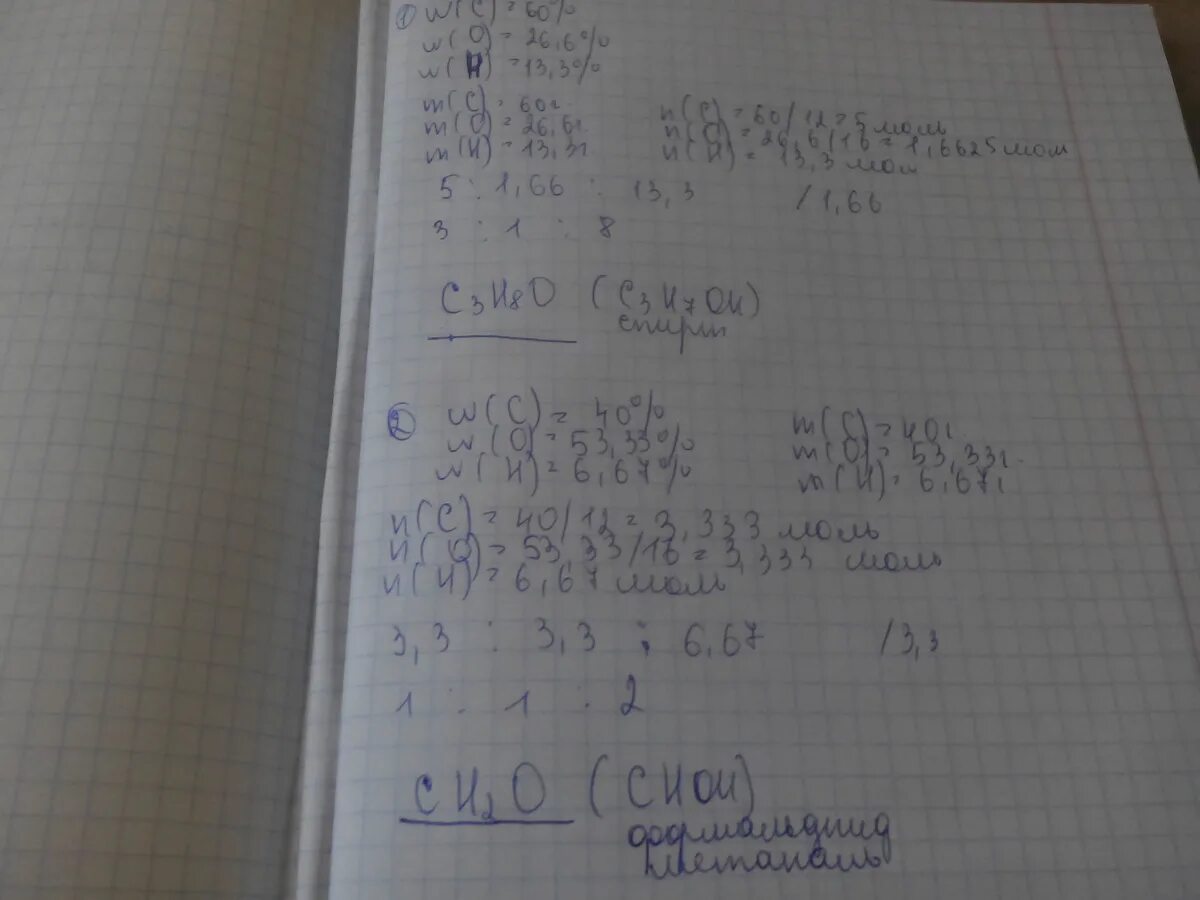 1 w(C) = 60%
w(O) = 26,6%
w(H) = 13,3%
m(C) = 60г
m(O) = 26,6г
m(H) = 13,3г
n(C) = 60/12 = 5 моль
n(O) = 26,6/16 = 1,6625 мол
n(H) = 13,3 мол
5 : 1,66 : 13,3 /1,66
3 : 1 : 8
C3H8O (C3H7OH)
спирт
2 w(C) = 40%
w(O) = 53,33%
w(H) = 6,67%
m(C) = 40г
m(O) = 53,33г.
m(H) = 6,67г
n(C) = 40/12 = 3,333 моль
n(O) = 53,33/16 = 3,333 моль
n(H) = 6,67 мол
3,3 : 3,3 : 6,67 /3,3
1 : 1 : 2
CH2O (CHOH)
формальдгид
метаналь